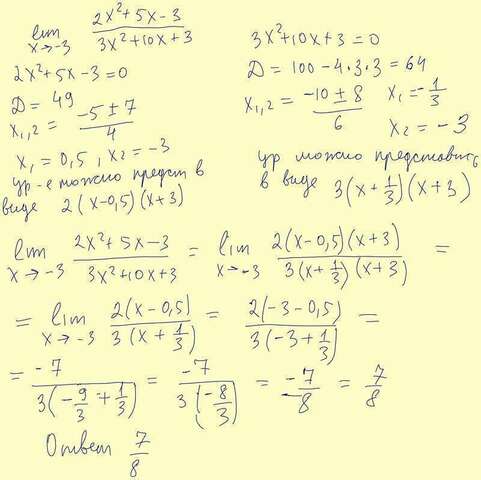 lim x→-3 (2x²+5x-3)/(3x²+10x+3)
2x²+5x-3=0
D = 49
x₁,₂ = (-5±7)/4
x₁ = 0,5, x₂ = -3
ур-е можно предст в
виде 2(x-0,5)(x+3)
3x²+10x+3=0
D = 100-4·3·3 = 64
x₁,₂ = (-10±8)/6 x₁=-1/3
x₂ = -3
ур можно представить
в виде 3(x+1/3)(x+3)
lim x→-3 (2x²+5x-3)/(3x²+10x+3) = lim x→-3 (2(x-0,5)(x+3))/(3(x+1/3)(x+3)) =
= lim x→-3 (2(x-0,5))/(3(x+1/3)) = (2(-3-0,5))/(3(-3+1/3)) =
= -7/(3(-9/3+1/3)) = -7/(3(-8/3)) = -7/-8 = 7/8
Ответ 7/8